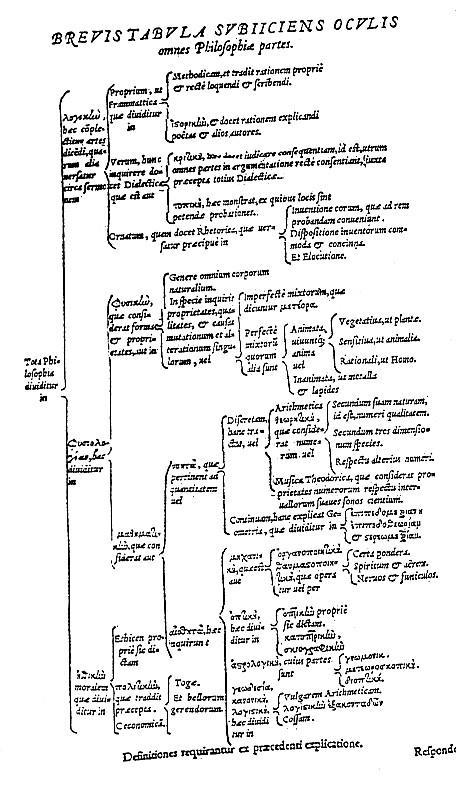 BREVIS TABVLA SVBIICIENS OCVLIS
omnes Philosophiæ partes.
Tota Phi-
losophia
diuiditur
in
λογικὼ,
hæc cõple-
ctitur artes
dicẽdi, qua-
rum alia
versatur
circa sermo-
nem
Proprium, ut
Grammatica
quæ diuiditur
in
Methodicam, et tradit rationem propriè
& rectè loquendi & scribendi.
ἱσορικὼ, & docet rationem explicandi
poëtas & alios autores.
Verum, hunc
inquirere do-
cet Dialectica
quæ est aut
omnes partes in argumentatione rectè consentiant, iuxta
præcepta totius Dialecticæ.
τοπικὰ, hæc monstrat, ex quibus locis sint
petendæ probationes.
Ornatum, quem docet Rhetorica, quæ uer-
satur præcipuè in
Inuentione eorum, quæ ad rem
probandam conueniunt.
Dispositione inuentorum com-
moda & concinna.
Et Elocutione.
Φυσικὼ,
quæ consi-
derat formas
& proprie-
tates, aut in
Genere omnium corporum
naturalium.
In specie inquirit
proprietates, qua-
litates, & causas
mutationum et al-
terationum singu-
lorum, uel
Imperfectè mixtorum, quæ
dicuntur
Perfectè
mixtorũ
quorum
alia sunt
Animata,
uiuuntq́
anima
uel
Vegetatiua, ut plantæ.
Sensitiua, ut animalia.
Rationali, ut Homo.
Inanimata, ut metalla
& lapides
hæc
diuiditur
in
quæ con-
siderat aut
νοητὰ, quæ
pertinent ad
quantitatem
uel
Discretam,
hanc tra-
ctat, uel
Arithmetica
quæ conside-
rat nume-
rum uel
Secundum suam naturam,
id est, numeri qualitatem.
Secundum tres dimensio-
num species.
Respectu alterius numeri.
Musica Theodorica, quæ considerat pro-
prietates numerorum respectu inter-
uallorum suaues sonos cientium.
Continuam, hanc explicat Geo-
metria, quæ diuiditur in
αἰσθητὰ, hæc
inquirunt
aut
quæ opera-
tur uel per
Certa pondera.
Spiritum & aërem.
Neruos & funiculos.
ὀπτικὰ,
hæc diui-
ditur in
ὀπτικὼ propriè
sic dictam.
κατοπτρικὼ,
cuius partes
sunt
γεωδαισία,
κανονικὰ,
λογιστικὰ
hæc diuidi-
tur in
Vulgarem Arithmeticam.
Cossam.
ἠθικὼ
moralem
quæ diui-
ditur in
Ethicen pro-
priè sic di-
ctam
πολιτικὼ,
quæ tradit
præcepta
Oeconomica.
Togæ.
Et bellorum
gerendorum.
Definitiones requirantur ex præcedenti explicatione.
Responde